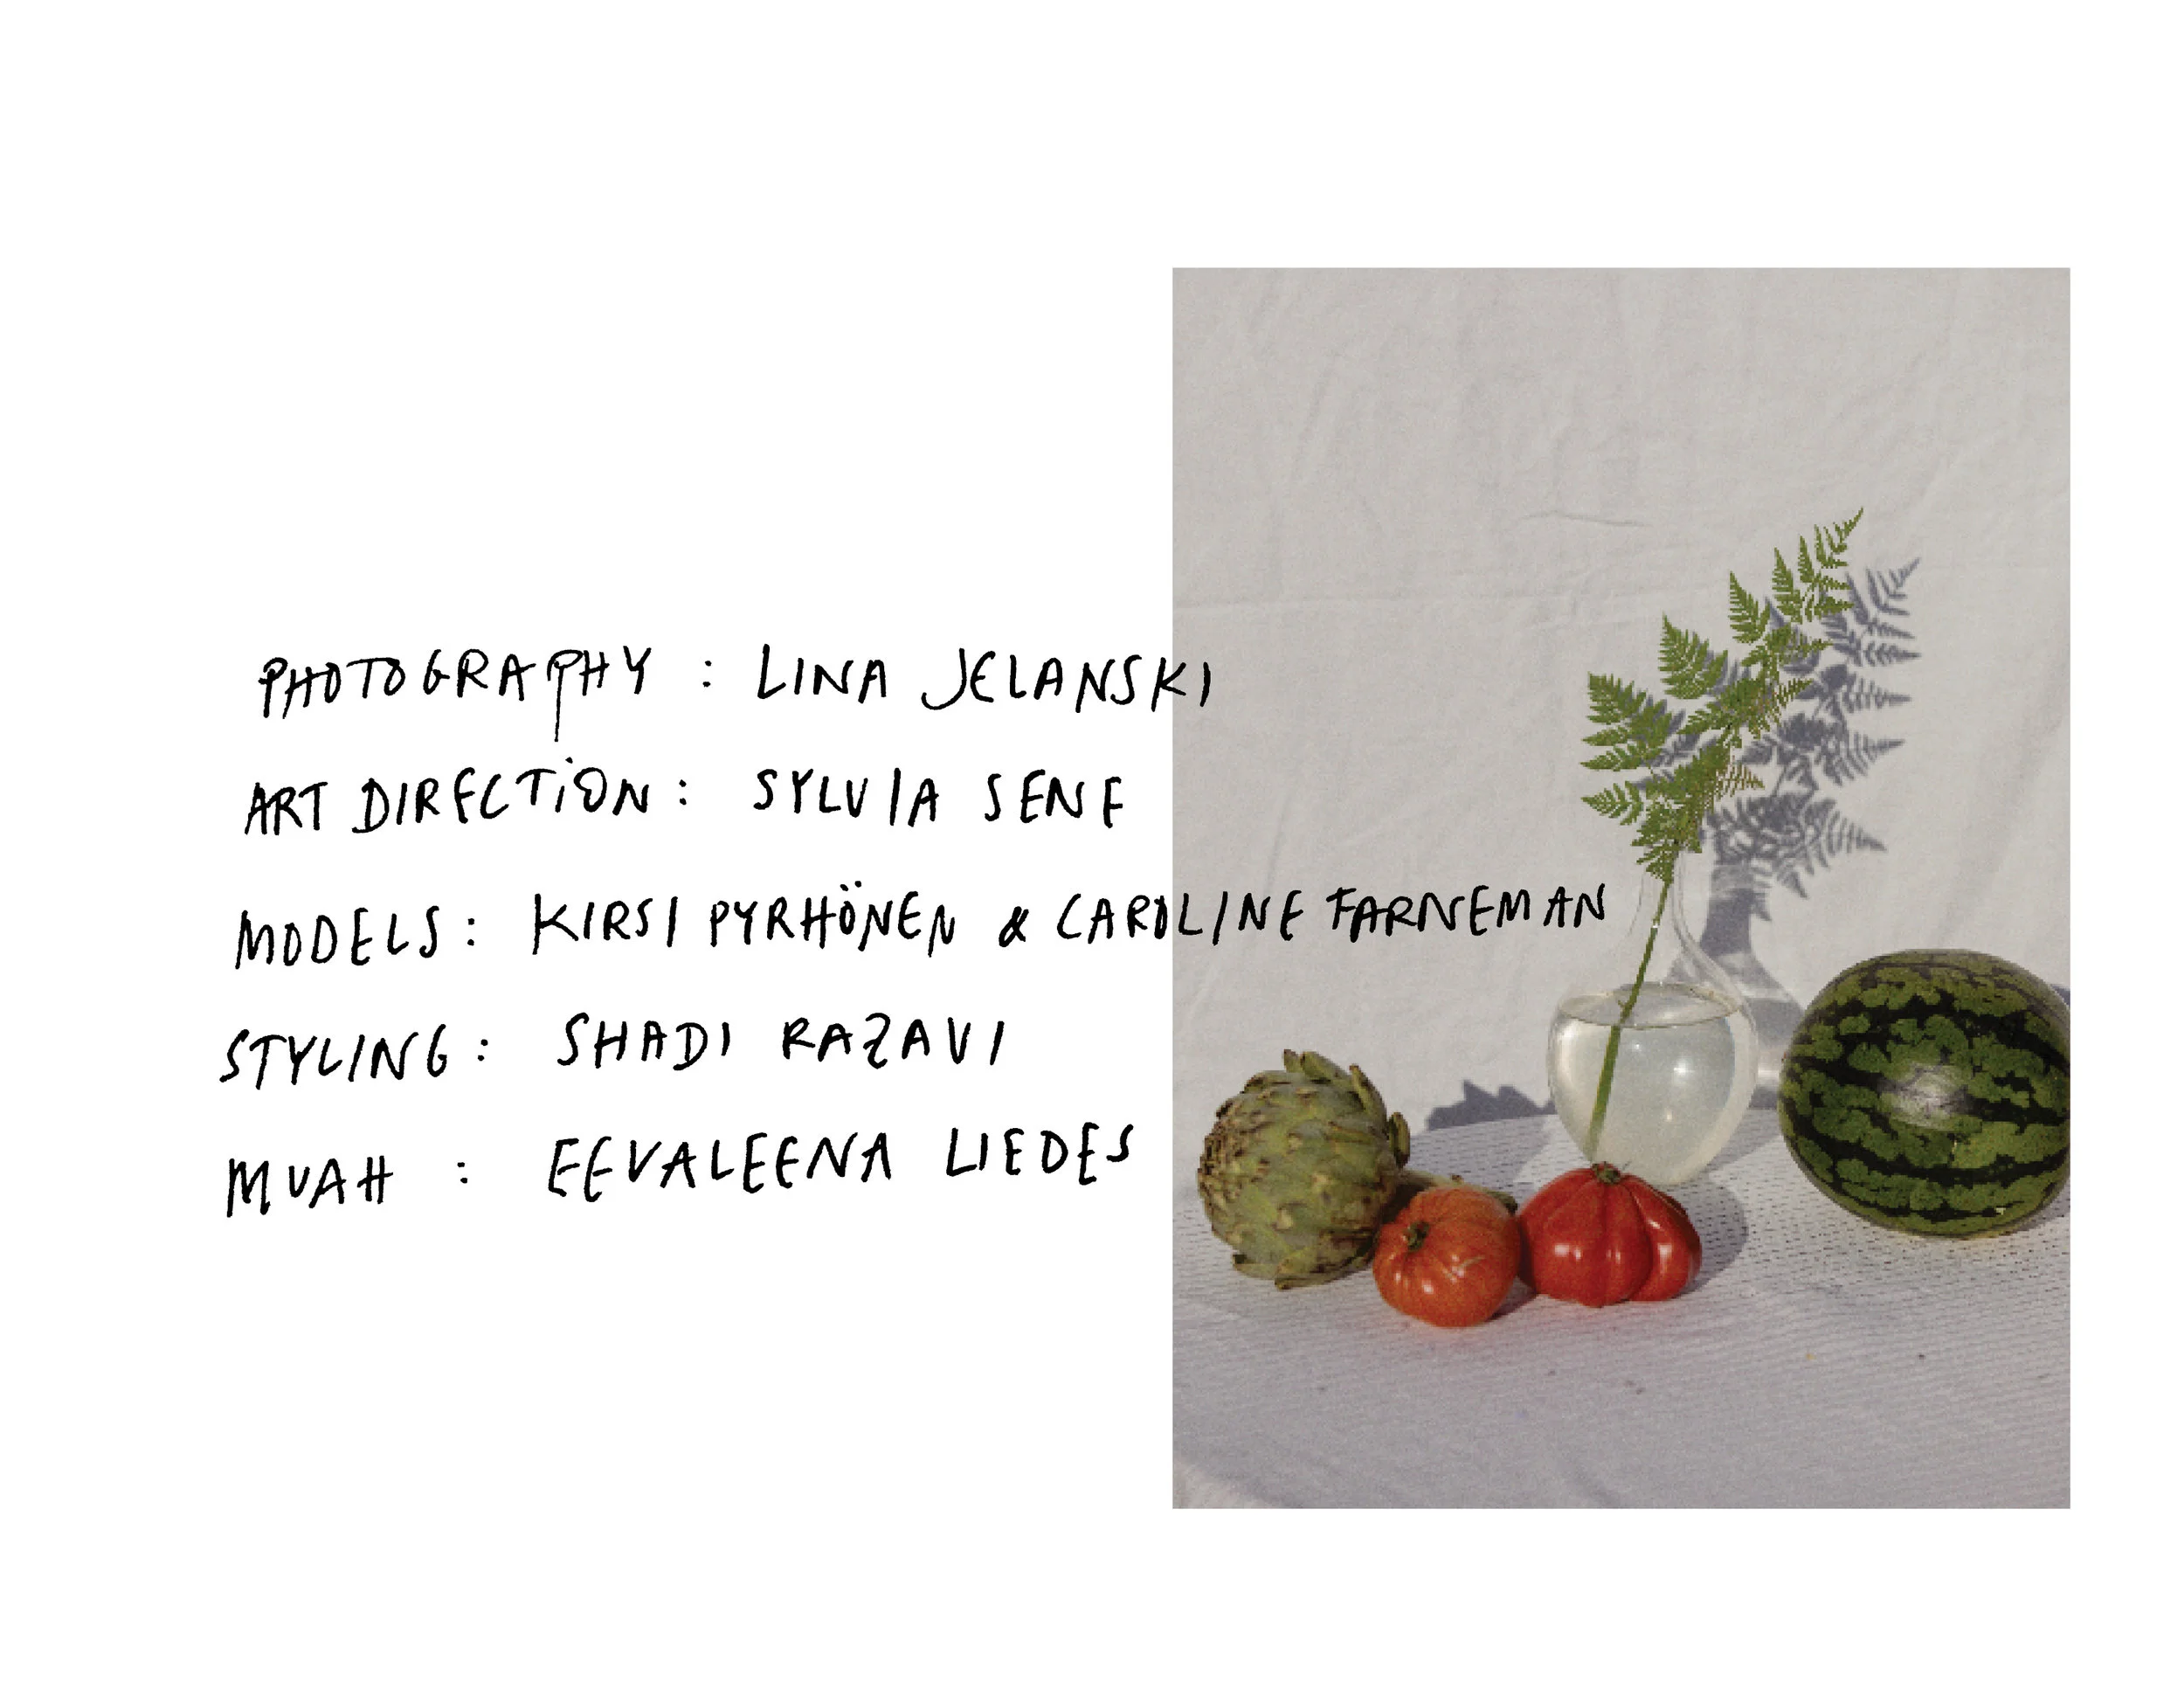 PHOTOGRAPHY : LINA JELANSKI
ART DIRECTION : SYLVIA SENE
MODELS : KIRSI PYRHÖNEN & CAROLINE FARNEMAN
STYLING : SHADI RAZAVI
MUAH : EEVALEENA LIEDES